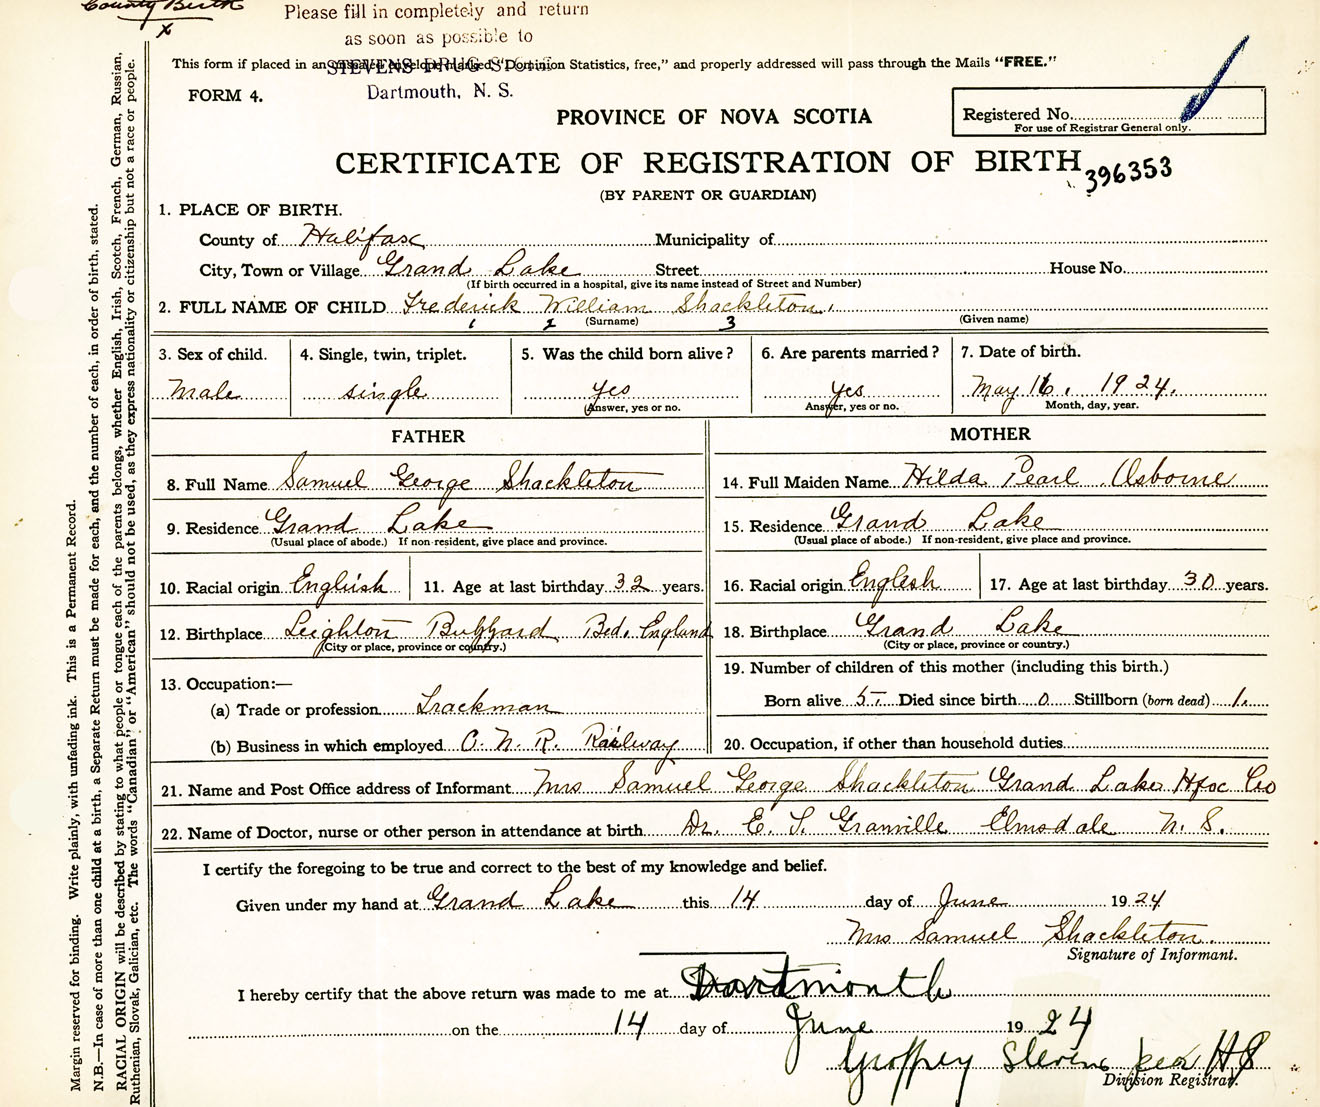 County Birth
x
Please fill in completely and return
as soon as possible to
This form if placed in an unsealed envelope marked "Dominion Statistics, free," and properly addressed will pass through the Mails "FREE."
STEVENS DRUG STORE
FORM 4.
Dartmouth, N. S.
PROVINCE OF NOVA SCOTIA
Registered No.
For use of Registrar General only.
CERTIFICATE OF REGISTRATION OF BIRTH
396353
(BY PARENT OR GUARDIAN)
1. PLACE OF BIRTH.
County of Halifax Municipality of
City, Town or Village Grand Lake Street House No.
(If birth occurred in a hospital, give its name instead of Street and Number)
2. FULL NAME OF CHILD Frederick William Shackleton.
1 2 (Surname) 3 (Given name)
3. Sex of child. 4. Single, twin, triplet. 5. Was the child born alive? 6. Are parents married? 7. Date of birth.
Male single yes yes May 16. 1924.
(Answer, yes or no. Answer, yes or no. Month, day, year.
FATHER MOTHER
8. Full Name Samuel George Shackleton 14. Full Maiden Name Hilda Pearl Osborne
9. Residence Grand Lake 15. Residence Grand Lake
(Usual place of abode.) If non-resident, give place and province. (Usual place of abode.) If non-resident, give place and province.
10. Racial origin English 11. Age at last birthday 32 years. 16. Racial origin English 17. Age at last birthday 30 years.
12. Birthplace Leighton Buzzard Bed. England 18. Birthplace Grand Lake
(City or place, province or country.) (City or place, province or country.)
19. Number of children of this mother (including this birth.)
13. Occupation:—
Born alive 5. Died since birth 0 Stillborn (born dead) 1.
(a) Trade or profession Trackman
(b) Business in which employed C. N. R. Railway 20. Occupation, if other than household duties
21. Name and Post Office address of Informant Mrs Samuel George Shackleton Grand Lake Hfx Co
22. Name of Doctor, nurse or other person in attendance at birth Dr. E. S. Granville Elmsdale N. S.
I certify the foregoing to be true and correct to the best of my knowledge and belief.
Given under my hand at Grand Lake this 14 day of June 1924
Mrs Samuel Shackleton.
Signature of Informant.
I hereby certify that the above return was made to me at Dartmouth
on the 14 day of June 1924
Geoffrey Stevens per HS
Division Registrar.
Margin reserved for binding. Write plainly, with unfading ink. This is a Permanent Record.
N.B.—In case of more than one child at a birth, a Separate Return must be made for each, and the number of each, in order of birth, stated.
RACIAL ORIGIN will be described by stating to what people or tongue each of the parents belongs, whether English, Irish, Scotch, French, German, Russian,
Ruthenian, Slovak, Galician, etc. The words "Canadian" or "American" should not be used, as they express nationality or citizenship but not a race or people.